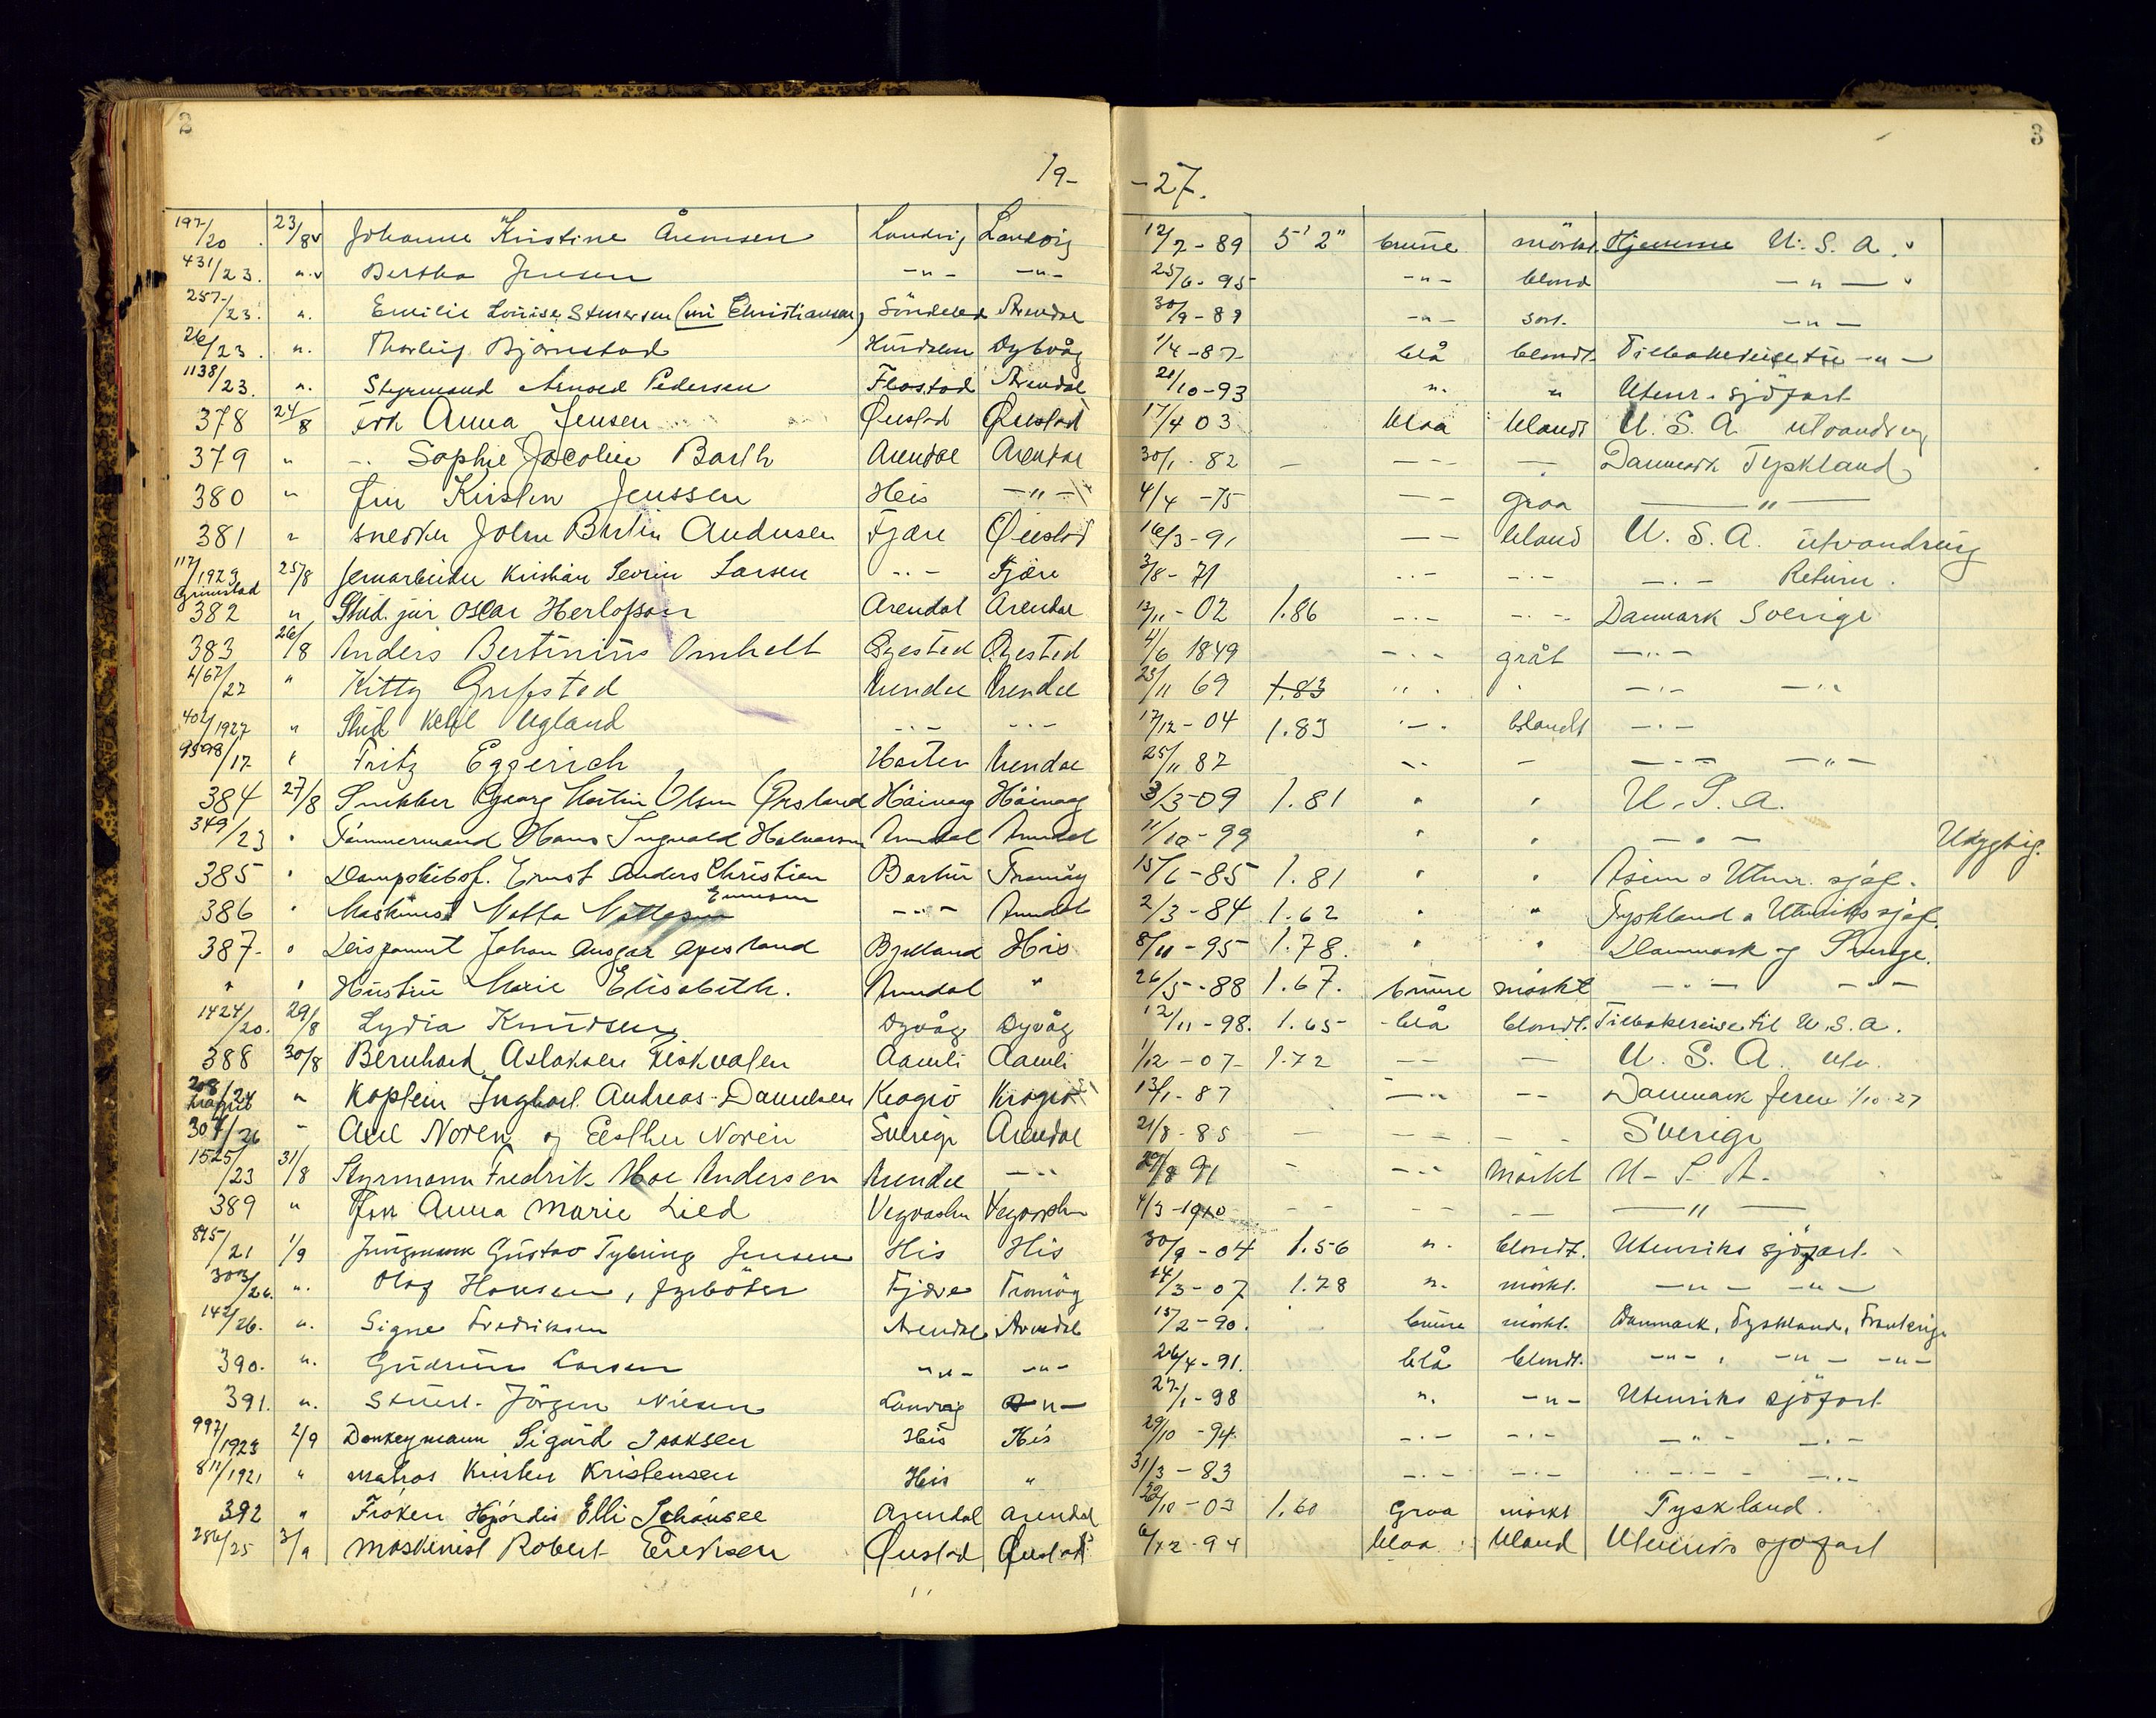 2
3
19- -27.
197/20 23/8 Johanne Kristine Arensen Landvig Landvig 12/2-89 5'2" brune mörkt Hjemme U.S.A.
431/23. ". Bertha Jensen -"- -"- 25/6-95 -"- blond -"-
257/23. ". Emilie Louise (née Christiansen) Söndeled Arendal 30/9-89 -"- sort. -"-
26/23. ". Thorleif Bjørnstad Dybvåg 1/4-87 blå blondt. Tilbakereise til -"-
1138/23. ". Styrmand Arnold Pedersen Flostad Arendal 21/10-93 ". " Utenr. sjöfart
378 24/8 frk Anna Jensen Öiestad Öiestad 17/4 03 blaa blondt U.S.A. utvandring
379 " -.. Sophie Jacobin Barth Arendal Arendal 30/1-82 - --- - Danmark Tyskland
380 " fru Kirsten Jenssen His -"- 4/4-75 -- graa -"-
381 " snekker John Bertin Andersen Fjære Öiestad 16/3-91 -- blond U.S.A. utvandring
117/1923 Grimstad 25/8 Jernarbeider Kristian Severin Larsen -..- Fjære 3/8-71 -..- -..- -.- Return.
382 " Stud. jur Oscar Herlofson Arendal Arendal 13/11-02 1.86 -.- -.- Danmark Sverige
383 26/8 Anders Bertinius Omholt Öyestad Öyestad 4/6 1849 -.- gråt -"-
467/22 " Kitty Arendal Arendal 23/11 69 1.83 ".. -.- -.-
402/1927 " Stud Ugland -.- -.- 17/12-04 1.83 -.- blondt -.-
9598/17 " Fritz Eggerich Horten Arendal 25/11 82 -.. - -.- -"-
384 27/8 Snekker Georg Martin Olsen Höivaag Höivaag 3/3-09 1.81 " " U.S.A.
349/23 " Tømmermand Hans Ingvald Halvorsen Arendal Arendal 11/10-99 " " -"- Udygtig.
385 " Dampskibsf. Ernst Anders Christian Barbu Tromöy 15/6-85 1.81 " " Utenr. sjöf.
386 " Maskinist Arendal 2/3-84 1.62 " " Tyskland o Utenriks sjöf.
387. " Johan Ansgar Bjelland His 8/11-95 1.78. " " Danmark og Sverige.
" " Hustru Marie Elisabeth. Arendal " 26/5-88 1.67. brune mörkt -.- -.-
1424/20. 29/8 Lydia Knudsen Dyvåg Dyvåg 12/11-98. 1.65 blå blondt. Tilbakereise til U.S.A.
388 30/8 Bernhard Aslaksen Aamli Aamli 1/12-07 1.72 -- - U.S.A. utv.
208/24 " Kaptein Andreas Danielsen Kragrö Kragrö 13/1-87 -.. -- Danmark 1/10 27
307/26 - Axel Noren og Esther Noren Sverige Arendal 21/8-85 - --- - - Sverige
1525/23 31/8 Styrmann Fredrik Moe Andersen Arendal -"- 29/8 91 - -.. Mörkt U.S.A.
389 " Frk Anna Marie Lied Vegaarshei Vegaarshei 4/3-1910 -- -- -- -"-
895/21 1/9 Jungmann Gustav Tybring Jensen His His 30/9-04 1.56 ". blondt. Utenriks sjöfart.
303/26. ". Olaf Hansen, fyrböter Fjære Tromöy 14/3-07 1.78 ". mörkt. -"- -"-
142/26. ". Signe Fredriksen Arendal Arendal 15/2-90. brune mörkt. Danmark, Tyskland, Frankrig
390. ". Gudrun Larsen -"- -"- 26/4-91. blå blondt. -"-, -"- -"-
391. ". Stuert. Jörgen Nilsen Landvig -"- 27/1-98 ". -"- Utenriks sjöfart
997/1923 2/9 Donkeymann Sigurd Isaksen His His 29/10-94 -.- -.- -.- -.-
811/1921 " matros Kristen Kristensen His " 31/3-83 -.- -.- -.- -.-
392 " Fröken Hjördis Elli Arendal Arendal 22/10-03 1.60 Graa mörkt Tyskland.
286/25 3/9 Maskinist Robert Eriksen Öiestad Öiestad 6/12-94 blaa blond Utenriks sjöfart